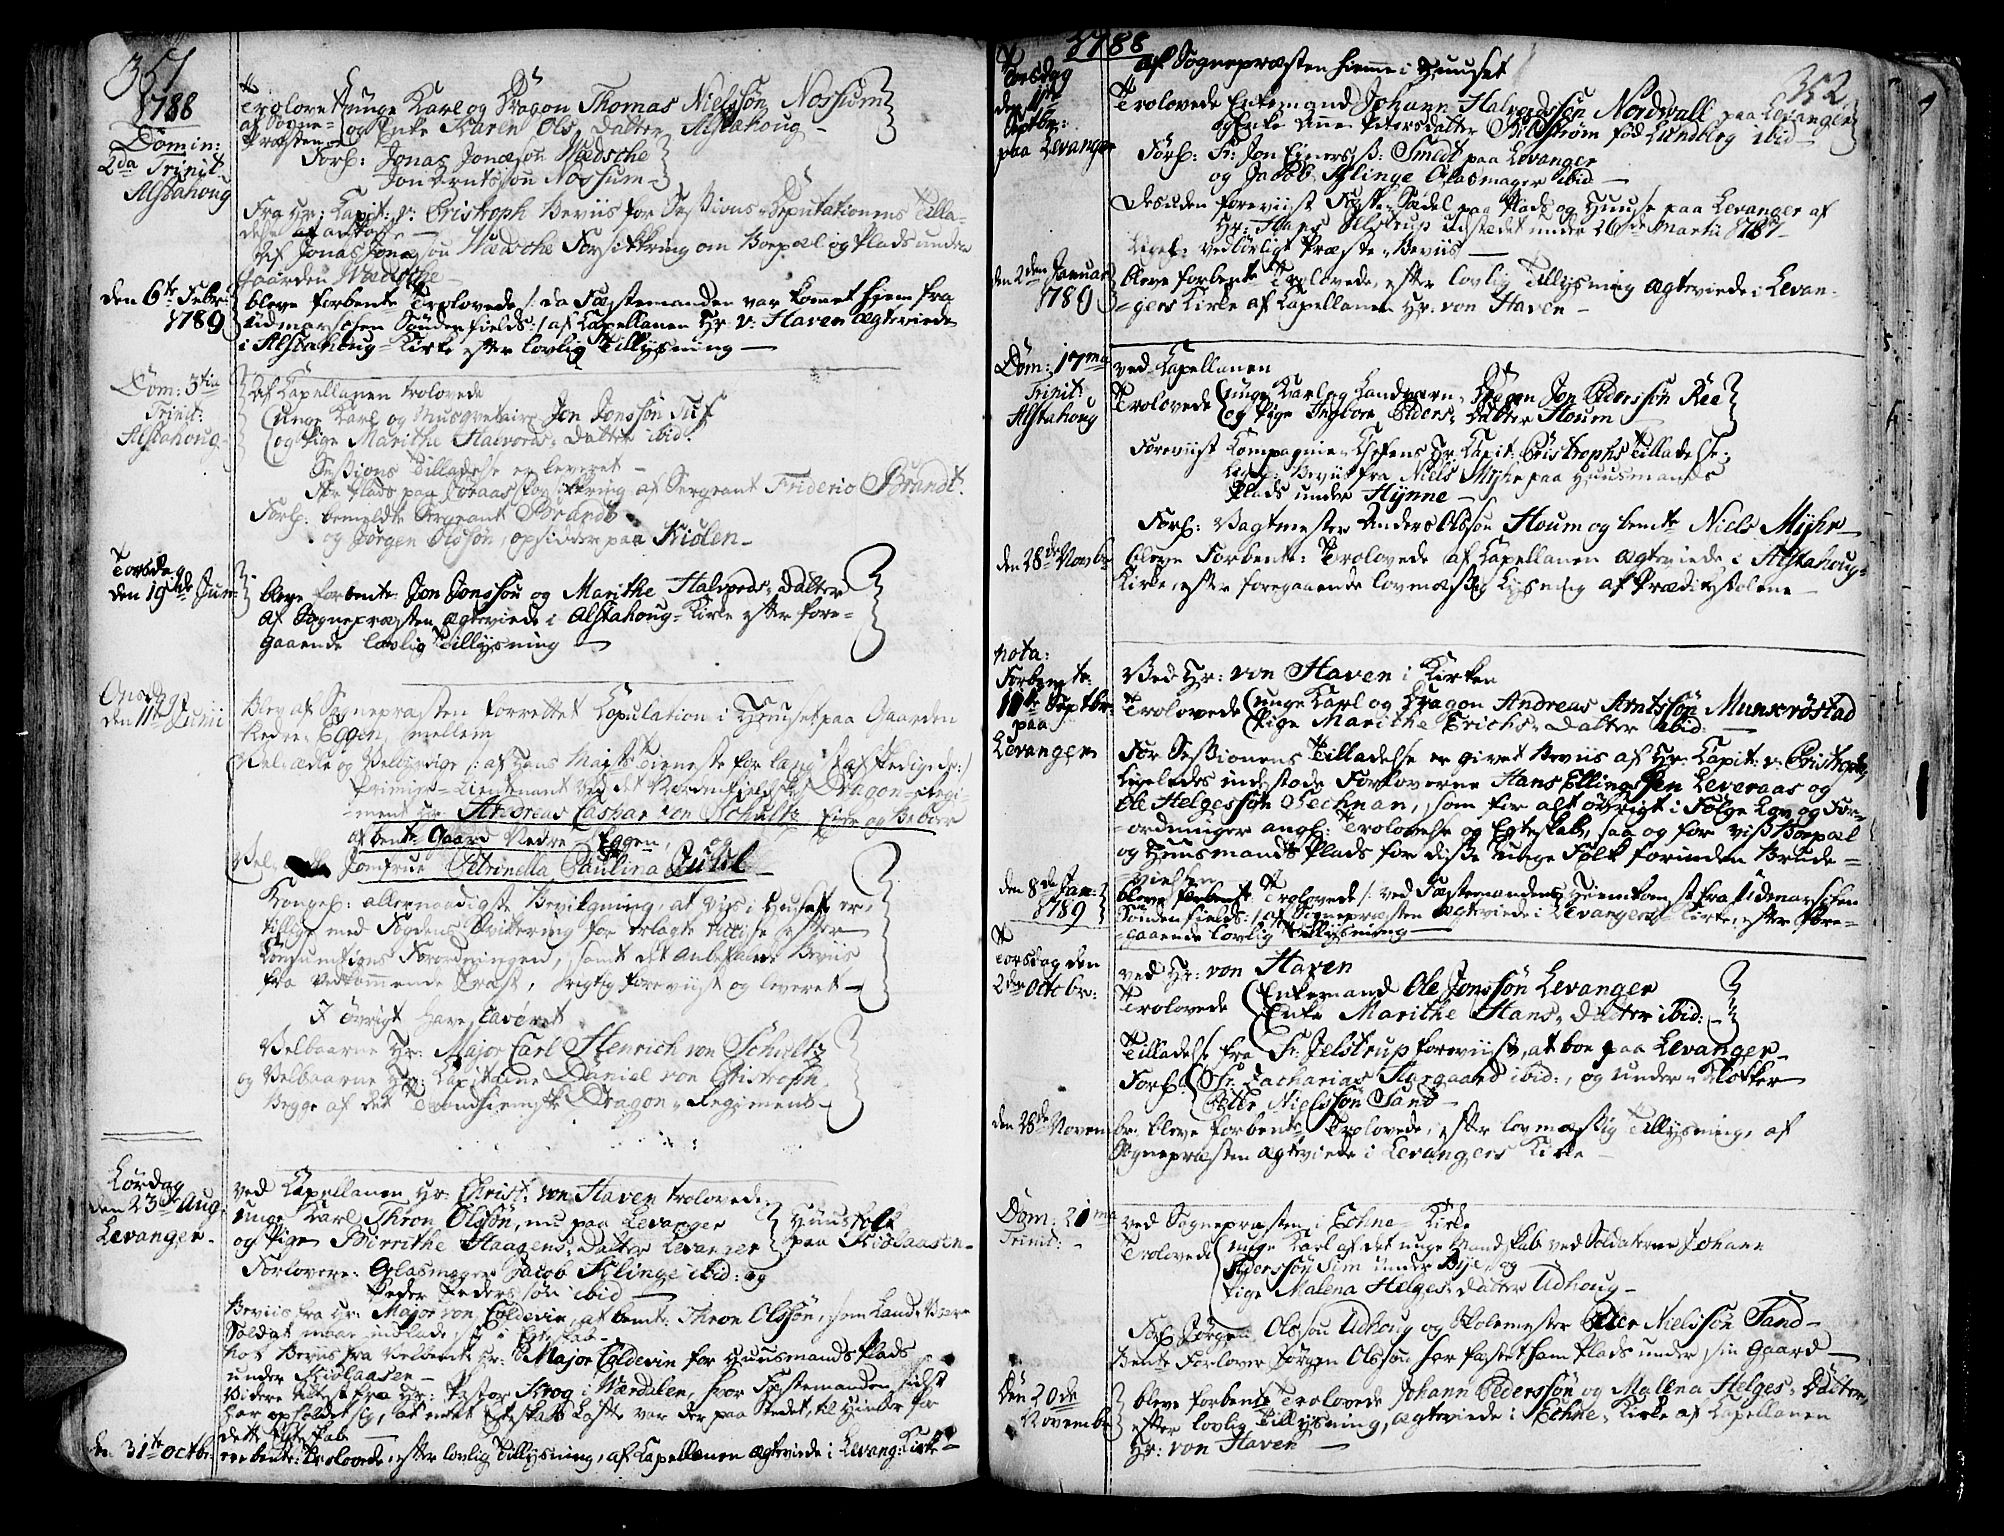 351
1788
Domin:
2da Trinit:
Alstahoug
Trolovet unge Karl og Dragon Thomas Nielssøn Nossum
af Sogne- og Enke Karen Ols Datter Alstahoug
Præsten
Forl: Jonas Jonassøn Wædsche
Jon Arntssøn Nossum
Fra Hr: Kapit: v: Cristroph Beviis for Seßions Deputationens Tilla-
delse
Af Jonas Jonassøn Wædsche Forsikkring om Boepæl og Plads under
Gaarden Wædsche
den 6te Febr:
1789
bleve forbente Trolovede /: da Fæstemanden var kommet hiem fra
Udmarschen Søndenfields :/ af Kapellanen Hr: v: Haven ægteviede
i Alstahoug Kirke efter lovlig Tillysning
Dom: 3tia
Trinit:
Alstahoug
Af Kapellanen trolovede
Unge Karl og Musqvetair Jon Jonssøn Tuf
og Pige Marithe Halvords Datter ibid:
Seßions Tilladelse er leveret
for Plads paa af Sergeant Frideric Brandt.
Forl: bemeldte Sergeant Brandt
og Jørgen Olssøn, opsidder paa Kiolen
Torsdag
den 19de Jun:
bleve forbente Jon Jonssøn og Marithe Halvords Datter
af Sognepræsten ægteviede i Alstahoug Kirke efter fore-
gaaende lovlig Tillysning
Onsdag
den 11te Junii
Blev af Sognepræsten forrettet Kopulation i Huuset paa Gaarden
Nedre Eggen, mellem
Velædle og Velbyrdige /: af Hans Majts Tieneste for lang afskedigede :/
Premier Lieutenant ved det Nordenfieldske Dragon Regi-
ment Hr: Andreas Caspar von Schultz Eier og Beboer
af bente Gaard Nedre Eggen,
og Vel Jomfrue Petrinella Paulina
Kongel: allernaadigst Bevilgning, at vies i Huuset er,
tillige med Fogdens Qvittering for erlagte efter
Consumtions Forordningen, samt det anbefalede Beviis
fra Vedkommende Præst, rigtig foreviist og leveret
I øvrigt have caveret
Velbaarne Hr: Major Carl Henrich von Schultz
og Velbaarne Hr: Kapitaine Daniel von Cristroph,
Begge af det Trondhiemske Dragon Regiment
Lørdag
den 23de Aug:
Levanger
ved Kapellanen Hr: Christ: von Haven trolovede
unge Karl Thron Olssøn, nu paa Levanger
og Pige Birrithe Haagens Datter Levanger
Huusfolk
paa Kiolaasen
Forlovere: Glasmager Jacob Klinge ibid: og
Peder Pederssøn ibid
Beviis fra Hr: Major von Coldevin, at bemte Thron Olssøn, som Land Værn
Soldat maae indlade sig i Egteskab
Not Beviis fra Velbemte Hr: Major Coldevin for Huusmands Plads
under Kiolaasen
Videre Attest fra Hr: Pastor Krog i Værdalen, hvor Fæstemanden sidst
har opholdet sig, at intet Egteskab Løfte var der paa Stedet, til Hinder for
dette Egteskab
den 31te Octbr:
ere bente Trolovede, efter lovlig Tillysning, af Kapellanen ægteviede i Levang: Kirke
1788
352
Torsdag
den 4de
Septbr:
paa Levanger
af Sognepræsten hiemme i Huuset
Trolovede Enkemand Johann Halvordssøn Nordwall paa Levanger
og Enke Anne Petersdatter født Lundberg ibid
Forl: Sr: Jon Einers: S: Smedt paa Levanger
og Jacob Klinge Glasmager ibid
Desuden foreviist Fæste Sedel paa Plads og Huuse paa Levanger af
Hr: Hans Jelstrup udstædet under 26de Martii 1787
Ligel: vedbørligt Præste Beviis
den 2den Januar
1789
bleve forbente Trolovede, efter lovlig Tillysning ægteviede i Levan-
gers Kirke af Kapellanen Hr: von Haven
Dom: 17ma
Trinit:
Alstahoug
ved Kapellanen
Trolovede unge Karl og Landværn Dragon Jon Pederssøn Ree
og Pige Ingbor Peders Datter Houm
Foreviist Kompagnie Chefens Hr: Kapit: Cristrophs Tilladelse;
Ligel: Beviis fra Niels Myhr paa Huusmands
Plads under Hynne
Forl: Vagtmester Anders Olssøn Houm og bemte Niels Myhr
den 28de Novbr
bleve Forbente: Trolovede af Kapellanen ægteviede i Alstahoug
Kirke, efter foregaaende lovmæßig Lysning af Prædikestolene
Nota:
Forbente
11te Septbr:
paa
Levanger
Ved Hr: von Haven i Kirken
Trolovede unge Karl og Dragon Andreas Arntssøn Munkrøstad
Pige Marithe Erichs Datter ibid:
For Seßionens Tilladelse er givet Beviis af Hr: Kapit: v: Cristroph,
ligeledes indestode Forloverne Hans Ellingssøn Leveraas og
Ole Helgessøn Techman, som for alt øvrigt i Følge Lov og For-
ordninger angl: Trolovelse og Egteskab, saa og for viß Boepæl
og Huusmands Plads for diße unge Folk forinden Brude-
vielsen
den 8de Jan:
1789
bleve forbente Trolovede /: ved Fæstemandens Hiemkomst fra Udmarschen
Søndenfields :/ af Sognepræsten ægteviede i Levangers Kirke, efter fore-
gaaende lovlig Tillysning
Torsdag den
2den Octobr:
ved Hr: von Haven
Trolovede Enkemand Ole Jonssøn Levanger
Enke Marithe Hans Datter ibid:
Tilladelse fra Sr: Jelstrup foreviist, at boe paa Levanger
Forl: Sr: Zacharias Aargaard ibid:, og under Klokker
Peter Nielssøn Sand
den 28de Novem
br: bleve forbente Trolovede, efter lovmæßig Tillysning, af
Sognepræsten ægteviede i Levangers Kirke
Dom: 21ma
Trinit:
ved Sognepræsten i Echne Kirke
Trolovede unge Karl af det unge Mandskab ved Soldaterne Johann
Pederssøn Sim under Bye, og
Pige Malena Helges Datter Udhoug
Forl: Jørgen Olssøn Udhoug og Skolemester Peter Nielssøn Sand
Bente Forlover Jørgen Olssøn har fæstet ham Plads under sin Gaard
Den 20de
Novembr
bleve forbente Trolovede Johann Pederssøn og Malena Helges Datter,
efter lovlig Tillysning, ægteviede i Echne Kirke af Kapellanen
Hr: von Haven